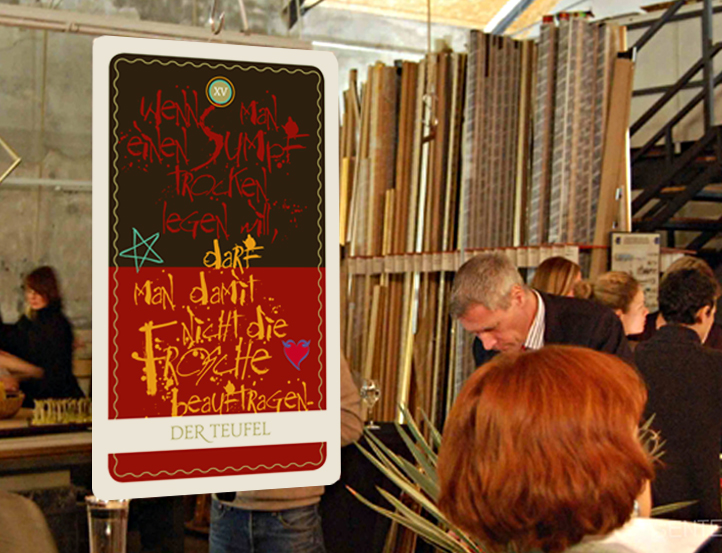 XV
Wenn man
einen Sumpf
trocken
legen will,
darf
man damit
nicht die
Frösche
beauftragen.
DER TEUFEL